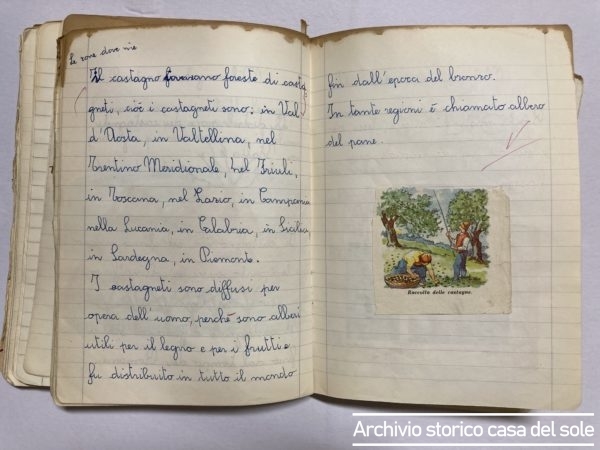 Le zone dove vie
Il castagno formano foreste di casta
gneti, cioè i castagneti sono: in Val
d'Aosta, in Valtellina, nel
Trentino Meridionale, nel Friuli,
in Toscana, nel Lazio, in Campania
nella Lucania, in Calabria, in Sicilia,
in Sardegna, in Piemonte.
I castagneti sono diffusi per
opera dell'uomo, perché sono alberi
utili per il legno e per i frutti e
fu distribuito in tutto il mondo
fin dall'epoca del bronzo.
In tante regioni è chiamato albero
del pane.
Raccolta delle castagne.
Archivio storico casa del sole